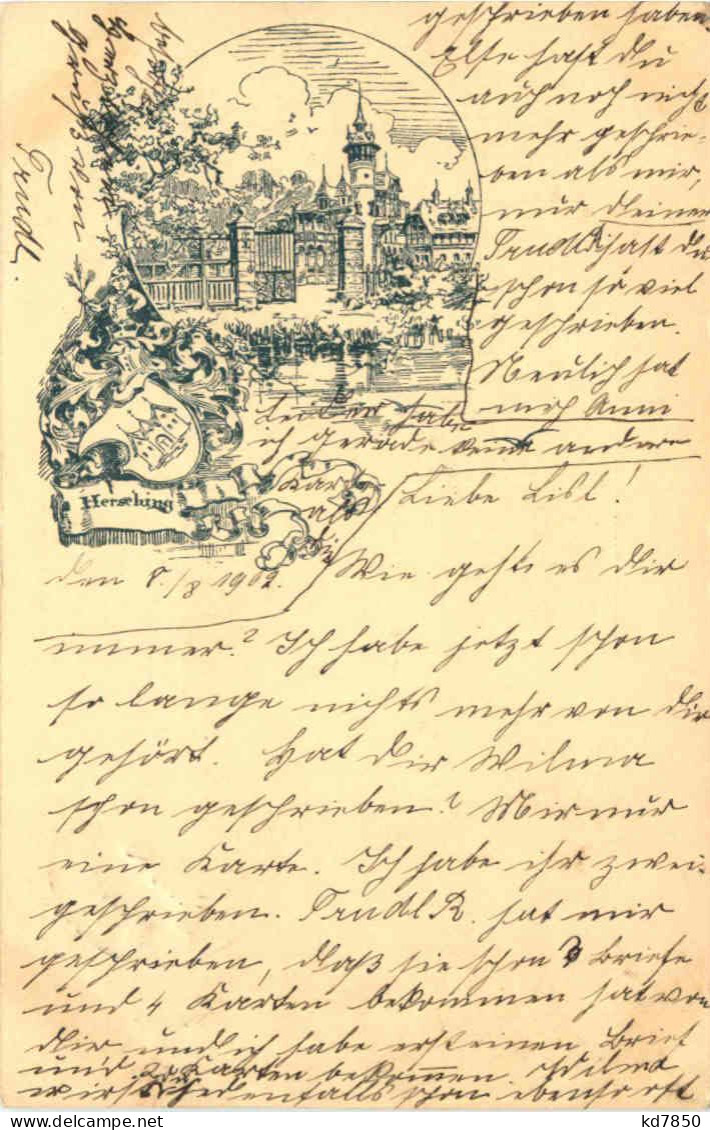 Herrsching
den 8./8 1902.
Liebe Lisl!
Wie geht es dir
immer? Ich habe jetzt schon
so lange nichts mehr von dir
gehört. Hat dir Wilma
schon geschrieben? Mir nur
eine Karte. Ich habe ihr zwei
geschrieben. Trudl R. hat mir
geschrieben, daß sie schon 3 Briefe
und 4 Karten bekommen hat von
dir und ich habe erst einen Brief
und Karten bekommen Wilma
wird jedenfalls schon ebenso oft
geschrieben haben.
Else hast du
auch noch nicht
mehr geschrie-
ben als mir,
nur deiner
Trudl R. hast du
schon so viel
geschrieben.
Neulich hat
mich Anni
Leider habe
ich gerade keine andere
Karte
als
die
Trudl.
kd7850
delcampe.net